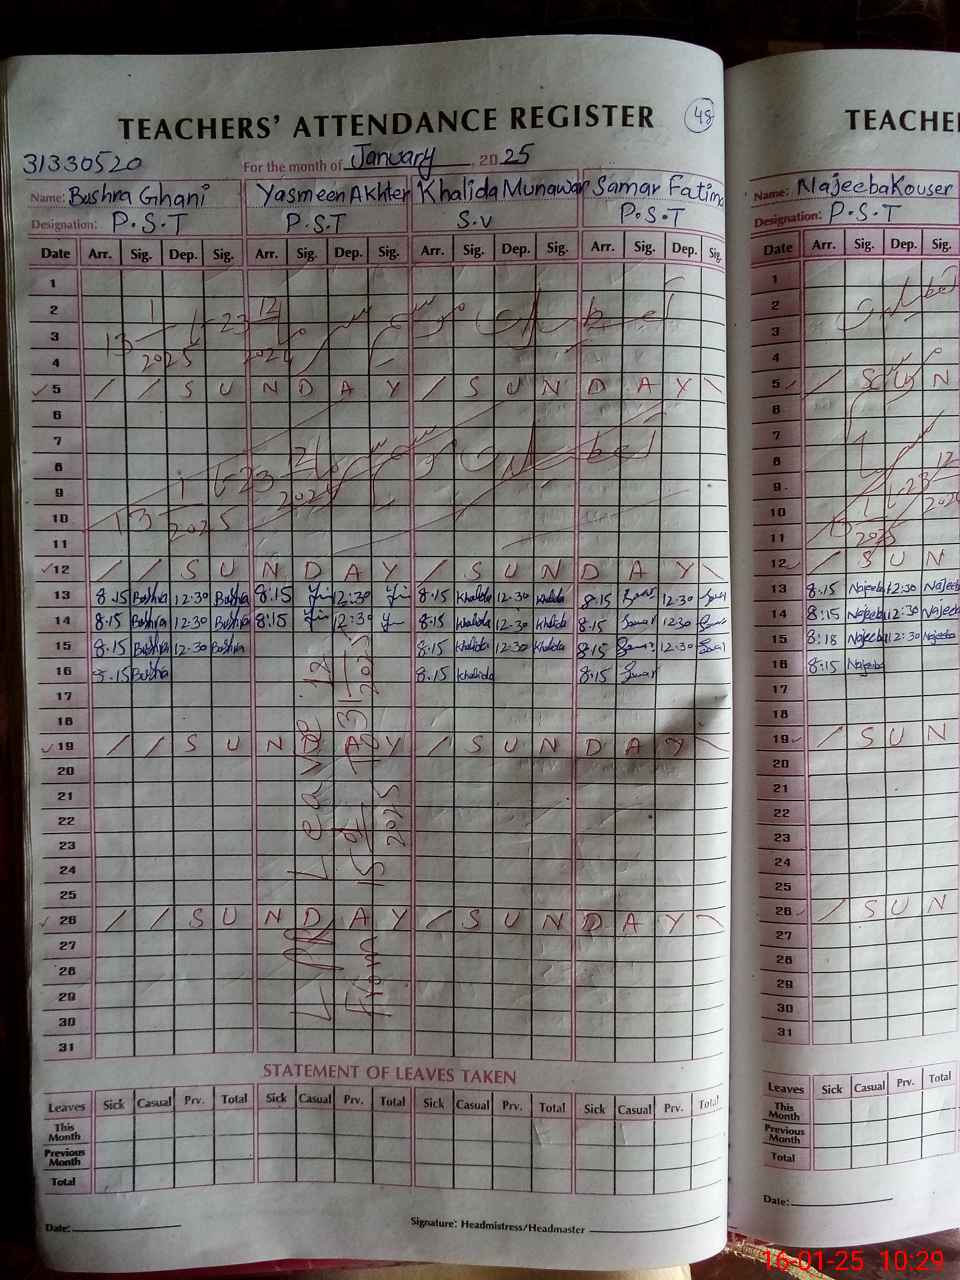 TEACHERS' ATTENDANCE REGISTER 48
31330520 For the month of January, 2025
Name: Bushra Ghani Yasmeen Akhter Khalida Munawar Samar Fatima
Designation: P.S.T P.S.T S.V P.S.T
Date Arr. Sig. Dep. Sig. Arr. Sig. Dep. Sig. Arr. Sig. Dep. Sig. Arr. Sig. Dep. Sig.
1
2
3
4
5 / / S U N D A Y / S U N D A Y \
6
7
8
9
10
11
12 / / S U N D A Y / S U N D A Y \
13 8.15 Bushra 12.30 Bushra 8:15 12:30 8.15 Khalida 12.30 Khalida 8.15 12.30
14 8.15 Bushra 12.30 Bushra 8:15 12:30 8.15 Khalida 12.30 Khalida 8.15 Samar 12.30
15 8.15 Bushra 12.30 Bushra 8.15 Khalida 12.30 Khalida 8.15 Samar 12.30
16 8.15 Bushra 8.15 Khalida 8.15 Samar
17
18
19 / / S U N D A Y / S U N D A Y \
20
21
22
23
24
25
26 / / S U N D A Y / S U N D A Y \
27
28
29
30
31
Leave
From 15
2025
STATEMENT OF LEAVES TAKEN
Leaves Sick Casual Prv. Total Sick Casual Prv. Total Sick Casual Prv. Total Sick Casual Prv. Total
This Month
Previous Month
Total
Date: Signature: Headmistress/Headmaster
TEACHE
Name: Najeeba Kouser
Designation: P.S.T
Date Arr. Sig. Dep. Sig.
1
2
3
4
5 / / S U N
6
7
8
9
10
11
12 / S U N
13 8.15 Najeeba 12:30 Najeeba
14 8:15 Najeeba 12:30 Najeeba
15 8:18 Najeeba 12:30 Najeeba
16 8:15 Najeeba
17
18
19 / S U N
20
21
22
23
24
25
26 / S U N
27
28
29
30
31
Leaves Sick Casual Prv. Total
This Month
Previous Month
Total
Date:
16-01-25 10:29